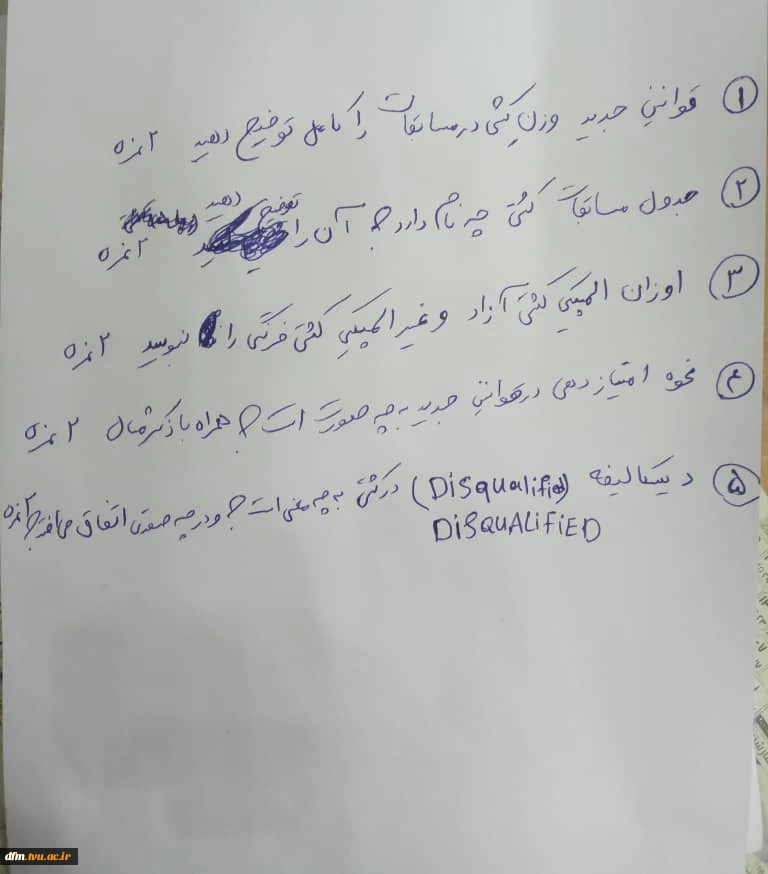 ۱ قوانین جدید وزن کشی در مسابقات را کامل توضیح دهید ۲ نمره
۲ جدول مسابقات کشتی چه نام دارد؟ آن را توضیح دهید ۲ نمره
۳ اوزان المپیکی کشتی آزاد و غیر المپیکی کشتی فرنگی را بنویسید ۲ نمره
۴ نحوه امتیاز دهی در قوانین جدید به چه صورت است؟ همراه با ذکر مثال ۲ نمره
۵ دیسکالیفه (DiSqualified) در کشتی به چه معنی است؟ و در چه صورتی اتفاق می افتد؟ ۲ نمره
DiSQUALiFiED
dfm.tvu.ac.ir